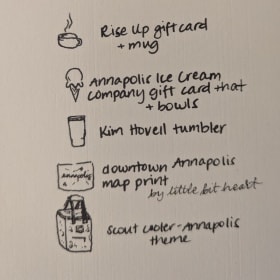 Rise Up gift card
+ mug
Annapolis Ice Cream
company gift card + hat
+ bowls
Kim Hovell tumbler
annapolis
downtown Annapolis
map print
by little bit heart
scout cooler - Annapolis
theme